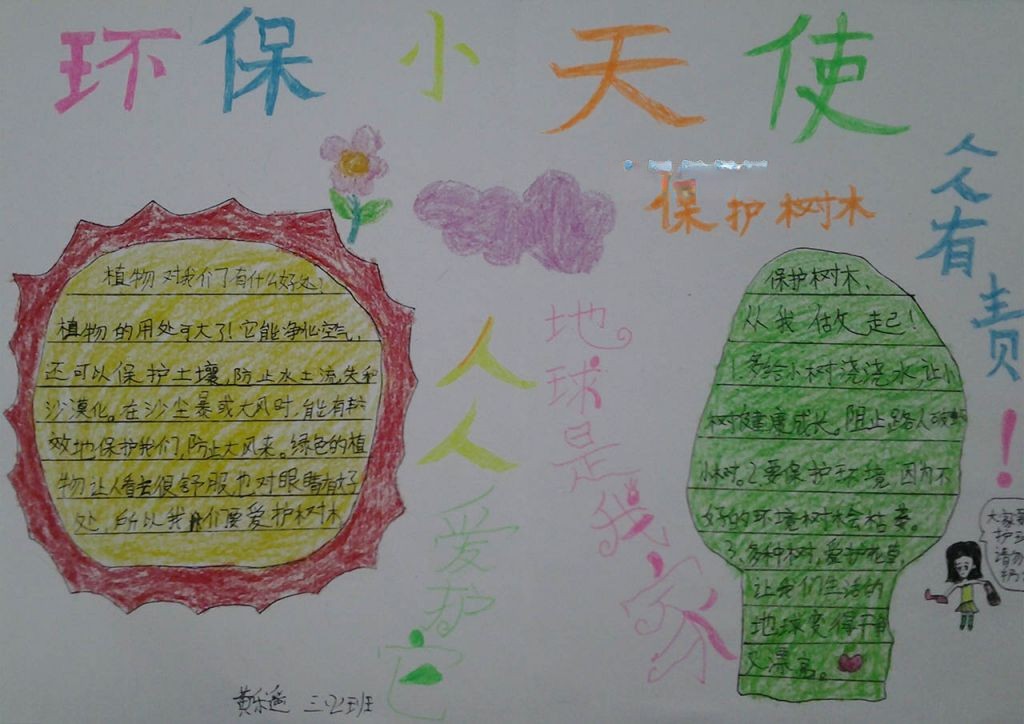 环保小天使
保护树木
人人有责！
植物对我们了有什么好处?
植物的用处可大了!它能净化空气,
还可以保护土壤,防止水土流失和
沙漠化。在沙尘暴或大风时,能有
效地保护我们,防止大风来。绿色的植
物让人看去很舒服也对眼睛有好
处,所以我们要爱护树木
人人爱护它
地球是我家
保护树木、
从我做起!
1.多给小树浇浇水,让小
树健康成长。阻止路人破
小树。2.要保护环境,因为不
好的环境树木会枯萎。
3.多种树,爱护花草,
让我们生活的
地球变得干
又漂亮。
大家要
护环
请勿
扔
黄乐遥 三(2)班